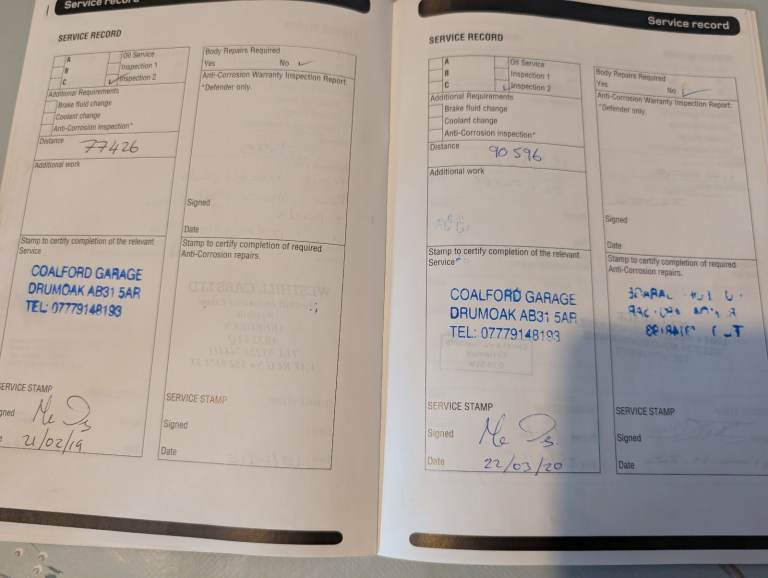 Service record
SERVICE RECORD
A
B
C
Oil Service
Inspection 1
Inspection 2
Additional Requirements
Brake fluid change
Coolant change
Anti-Corrosion inspection*
Distance 77426
Additional work
Stamp to certify completion of the relevant
Service
COALFORD GARAGE
DRUMOAK AB31 5AR
TEL: 07779148193
SERVICE STAMP
21/02/19
Body Repairs Required
Yes No
Anti-Corrosion Warranty Inspection Report:
*Defender only.
Signed
Date
Stamp to certify completion of required
Anti-Corrosion repairs.
WESTHILL CARS LTD
SERVICE STAMP
Signed
Date
Service record
SERVICE RECORD
A
B
C
Oil Service
Inspection 1
Inspection 2
Additional Requirements
Brake fluid change
Coolant change
Anti-Corrosion inspection*
Distance 90596
Additional work
Stamp to certify completion of the relevant
Service
COALFORD GARAGE
DRUMOAK AB31 5AR
TEL: 07779148193
SERVICE STAMP
Signed
Date 22/03/20
Body Repairs Required
Yes No
Anti-Corrosion Warranty Inspection Report:
*Defender only.
Signed
Date
Stamp to certify completion of required
Anti-Corrosion repairs.
SERVICE STAMP
Signed
Date